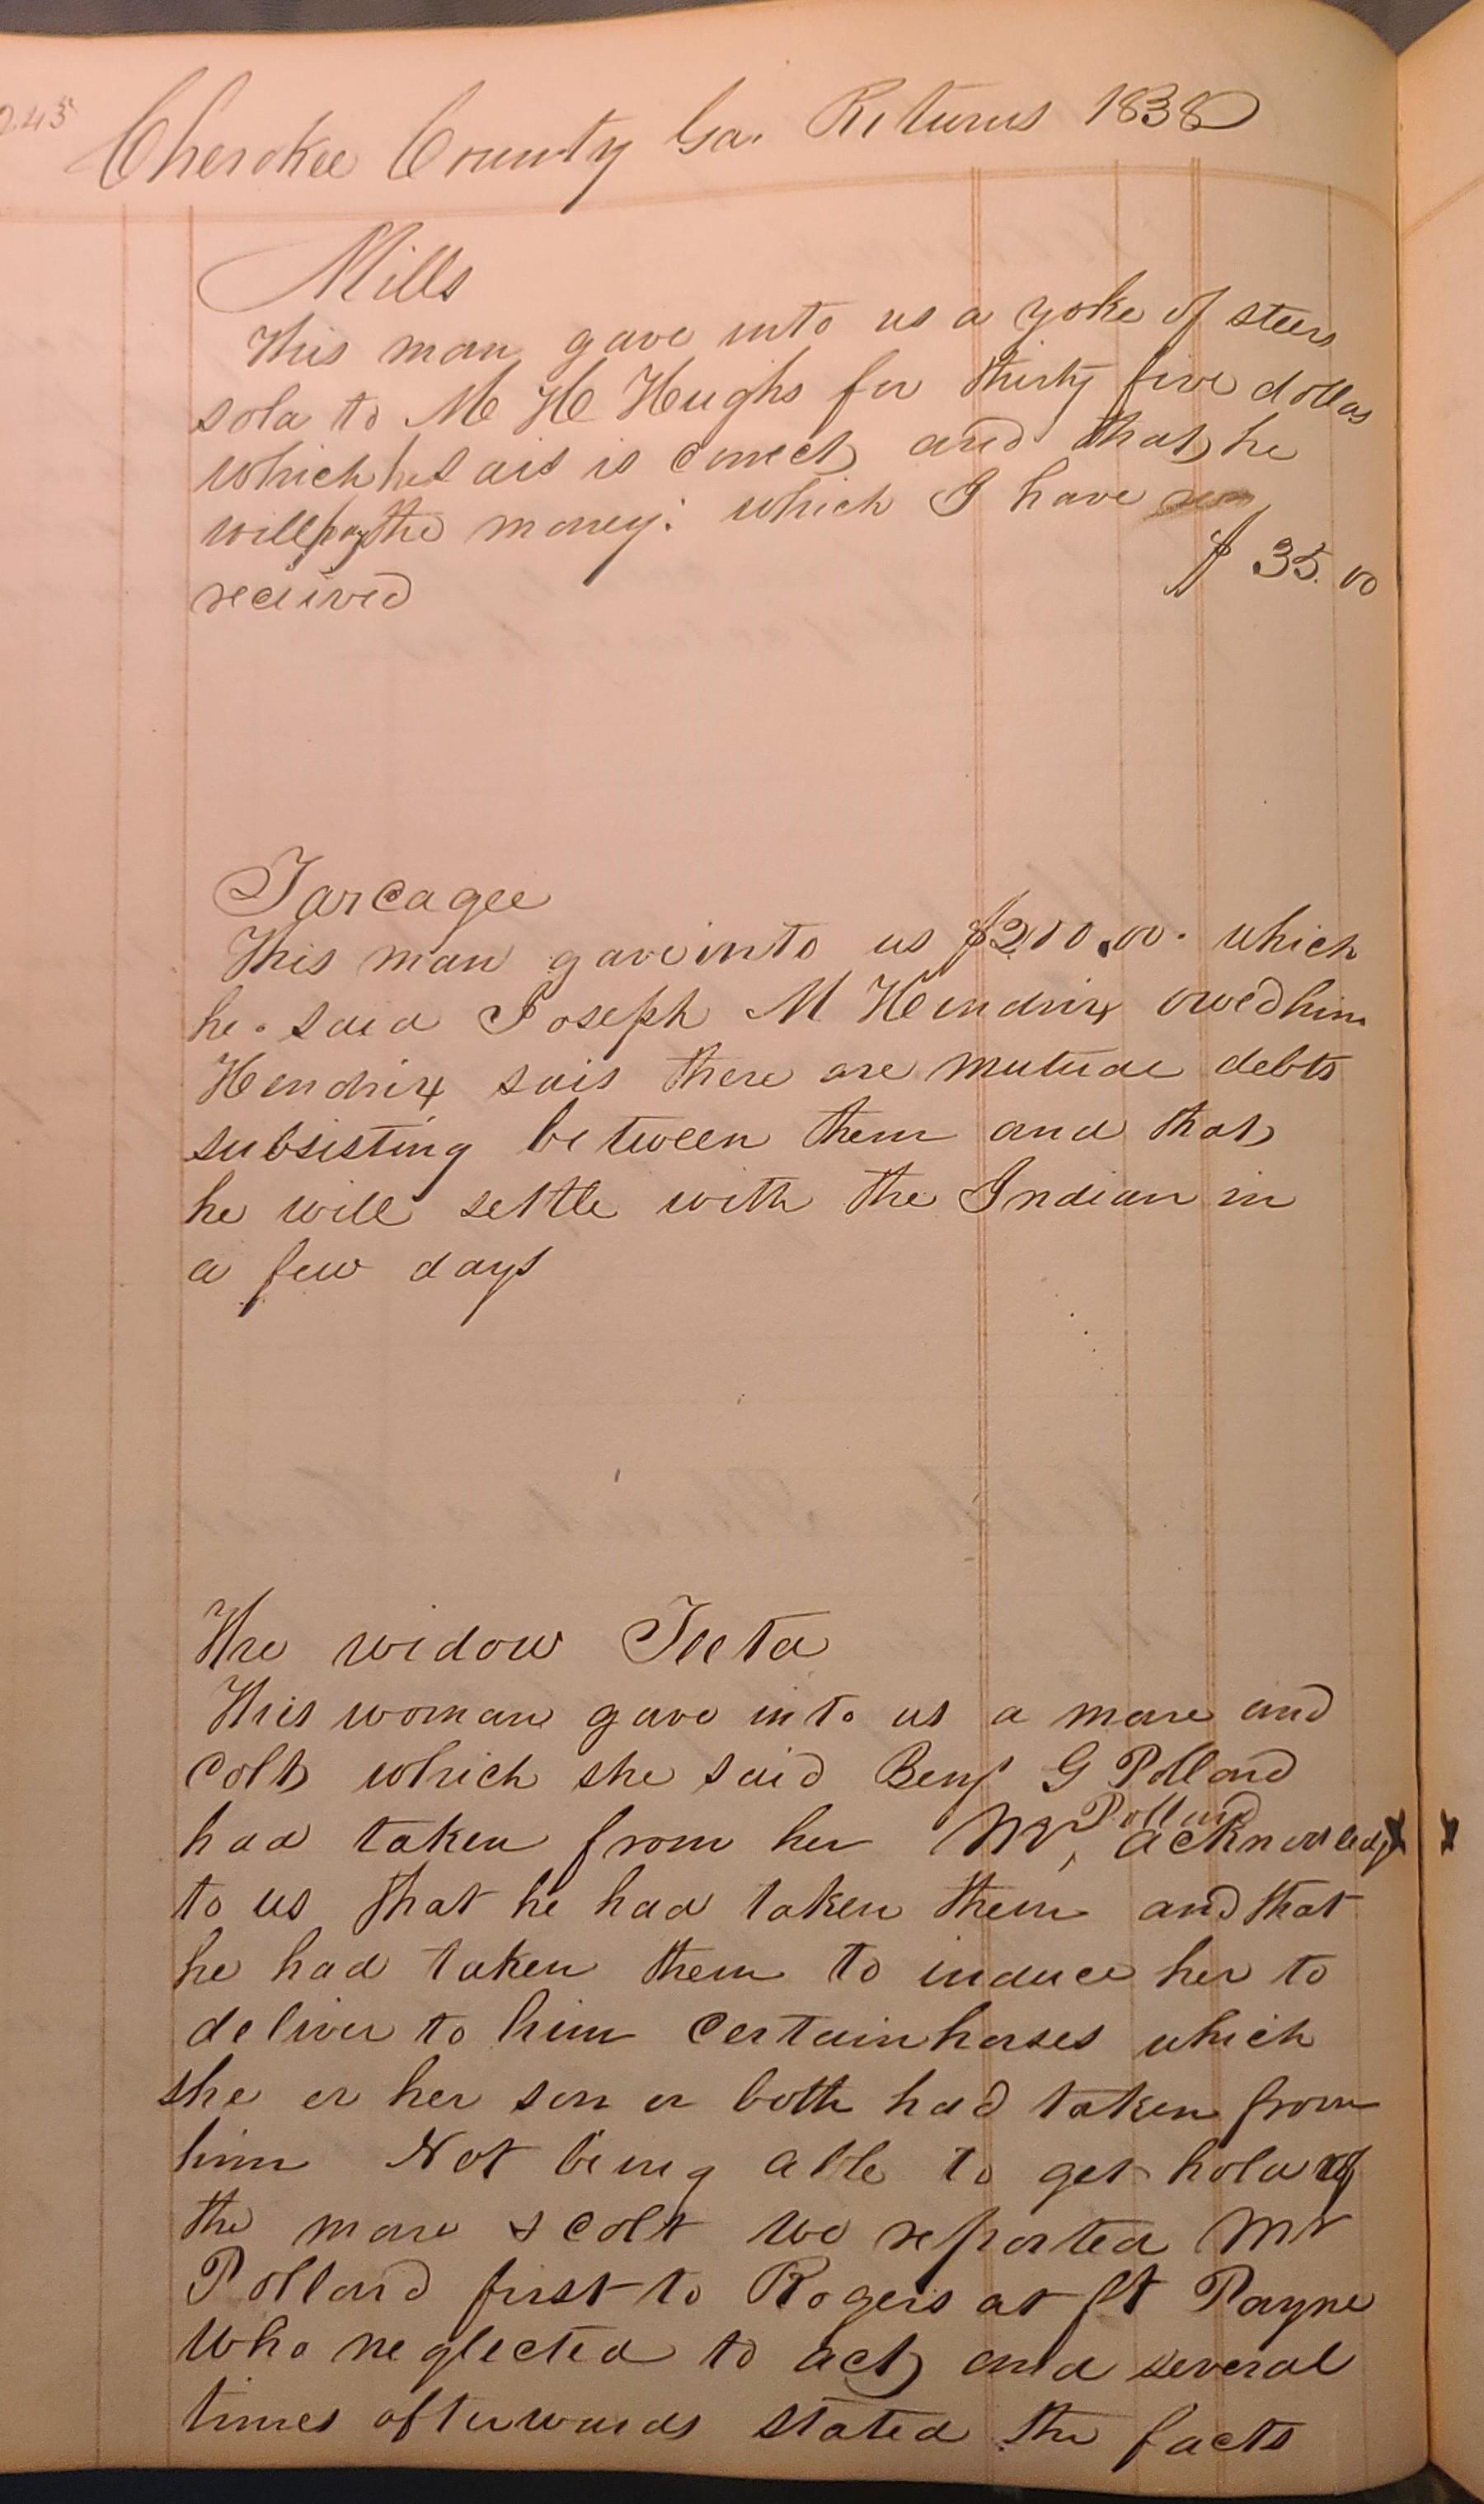 245
Cherokee County Ga. Returns 1838
Mills
This man gave into us a yoke of steers
sold to M H Hughs for thirty five dollars
which he sais is correct and that he
will pay the money: which I have
received $ 35.00
Tarcagee
This man gave into us $200.00. which
he. said Joseph M Hendrix owed him
Hendrix sais there are mutual debts
subsisting between them and that
he will settle with the Indian in
a few days
The widow Teeta
This woman gave into us a mare and
colt which she said Benj G Pollard
had taken from her Mr, Pollard acknowledge
to us that he had taken them and that
he had taken them to induce her to
deliver to him certain horses which
she or her son or both had taken from
him Not being able to get hold of
the mare & colt we reported Mr
Pollard first to Rogers at ft Payne
who neglected to act and several
times afterwards stated the facts